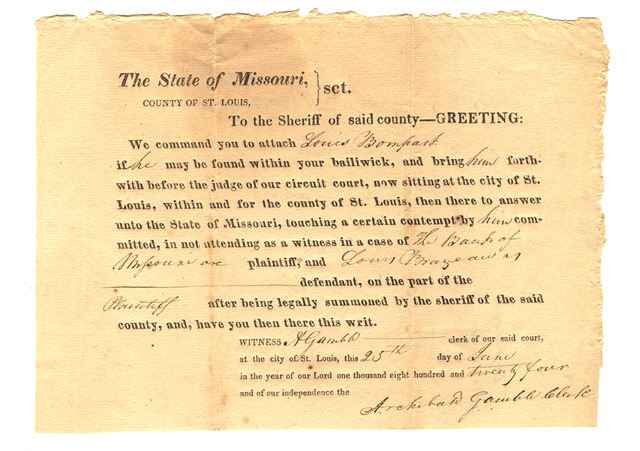 The State of Missouri, } sct.
COUNTY OF ST. LOUIS,
To the Sheriff of said county—GREETING:
We command you to attach Louis Bompart
if he may be found within your bailiwick, and bring him forth-
with before the judge of our circuit court, now sitting at the city of St.
Louis, within and for the county of St. Louis, then there to answer
unto the State of Missouri, touching a certain contempt by him com-
mitted, in not attending as a witness in a case of The Bank of
Missouri are plaintiff, and Louis Brazeau is
defendant, on the part of the
Plaintiff after being legally summoned by the sheriff of the said
county, and, have you then there this writ.
WITNESS A Gamble clerk of our said court,
at the city of St. Louis, this 25th day of June
in the year of our Lord one thousand eight hundred and twenty four
and of our independence the
Archibald Gamble Clerk